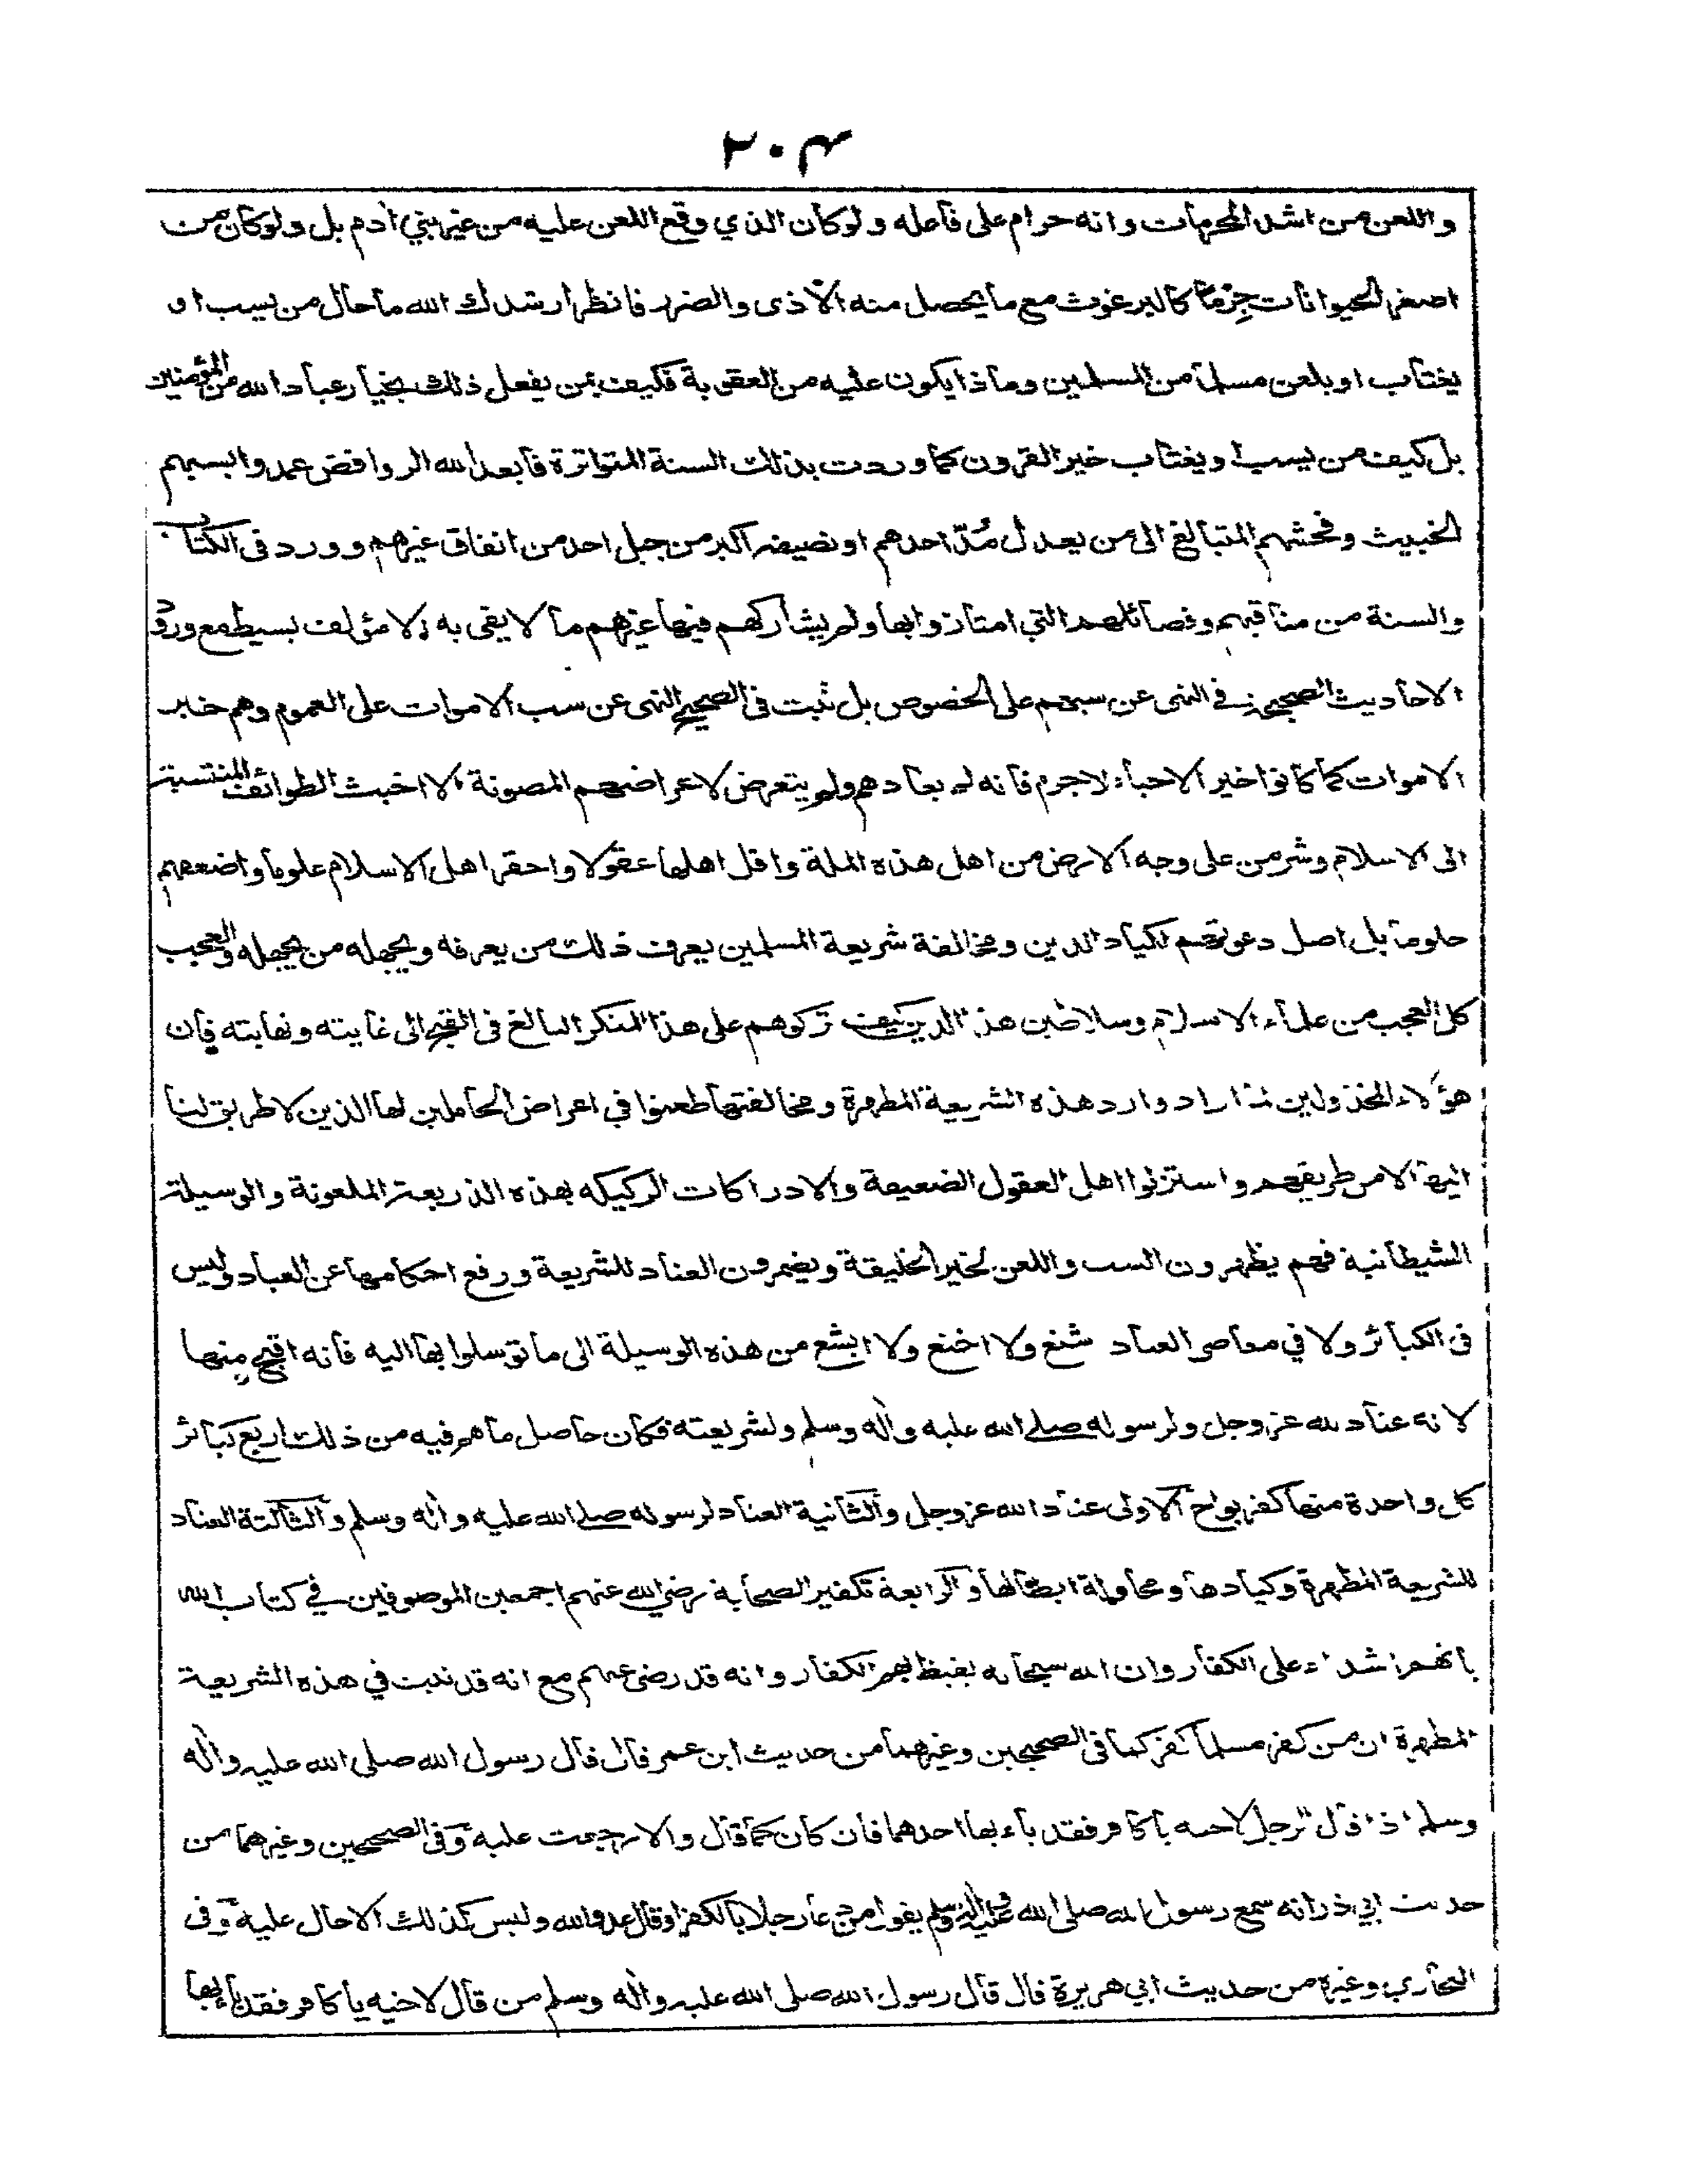 ٢٠٤
واللعن من اشد المحرمات وانه حرام على فاعله ولو كان الذي وقع اللعن عليه من غير بني اٰدم بل ولو كان من
اصغر الحيوانات جِرْمًا كالبرغوث مع ما يحصل منه الاذى والضرر فانظر ارشدك الله ما حال من يسب او
يغتاب او يلعن مسلما من المسلمين وماذا يكون عليه من العقوبة فكيف بمن يفعل ذلك بخيار عباد الله من المؤمنين
بل كيف من يسب او يغتاب خير القرون كما وردت بذلك السنة المتواترة فابعد الله الروافض عمدوا بسبهم
الخبيث وفحشهم المتبالغ الى من يعدل مُدّ احدهم او نصيفه اكبر من جبل احد من انفاق غيرهم وورد في الكتاب
والسنة من مناقبهم وفضائلهم التي امتازوا بها ولم يشاركهم فيها غيرهم ما لا يفي به الا مؤلف بسيط مع ورود
الاحاديث الصحيحة في النهى عن سبهم على الخصوص بل ثبت في الصحيح النهى عن سب الاموات على العموم وهم خير
الاموات كما كانوا خير الاحياء لا جرم فانه لم يعادهم ولم يتعرض لاعراضهم المصونة الا اخبث الطوائف المنتسبة
الى الاسلام وشر من على وجه الارض من اهل هذه الملة واقل اهلها عقولا واحقر اهل الاسلام علوما واضعفهم
حلوما بل اصل دعوتهم لكياد الدين ومخالفة شريعة المسلمين يعرف ذلك من يعرفه ويجهله من يجهله والعجب
كل العجب من علماء الاسلام وسلاطين هذا الدين كيف تركوهم على هذا المنكر البالغ في القبح الى غايته ونهايته فان
هؤلاء المخذولين لما ارادوا رد هذه الشريعة المطهرة ومخالفتها طعنوا في اعراض الحاملين لها الذين لا طريق لنا
اليها الا من طريقهم واستزلوا اهل العقول الضعيفة والادراكات الركيكه بهذه الذريعة الملعونة والوسيلة
الشيطانية فهم يظهرون السب واللعن لخير الخليقة ويضمرون العناد للشريعة ورفع احكامها عن العباد وليس
في الكبائر ولا في معاصي العباد شنع ولا اخنع ولا ابشع من هذه الوسيلة الى ما توسلوا بها اليه فانه اقبح منها
لانه عناد لله عز وجل ولرسوله صلى الله عليه واٰله وسلم ولشريعته فكان حاصل ما هم فيه من ذلك اربع كبائر
كل واحدة منها كفر بواح الاولى عناد الله عز وجل والثانية العناد لرسوله صلى الله عليه واٰله وسلم والثالثة العناد
للشريعة المطهرة وكيادها ومحاولة ابطالها والرابعة تكفير الصحابة رضي الله عنهم اجمعين الموصوفين في كتاب الله
بانهم اشداء على الكفار وان الله سبحانه يغيظ بهم الكفار وانه قد رضى عنهم مع انه قد ثبت في هذه الشريعة
المطهرة ان من كفر مسلما كفر كما في الصحيحين وغيرهما من حديث ابن عمر قال قال رسول الله صلى الله عليه واٰله
وسلم اذا قال الرجل لاخيه يا كافر فقد باء بها احدهما فان كان كما قال والا رجعت عليه وفي الصحيحين وغيرهما من
حديث ابي ذر انه سمع رسول الله صلى الله عليه واٰله وسلم يقول من دعا رجلا بالكفر او قال عدو الله وليس كذلك الا حال عليه وفى
البخاري وغيره من حديث ابي هريرة قال قال رسول الله صلى الله عليه واٰله وسلم من قال لاخيه يا كافر فقد باء بها